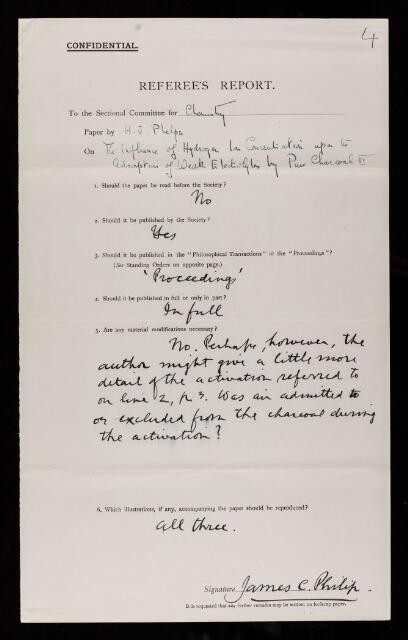 4
CONFIDENTIAL.
REFEREE'S REPORT.
To the Sectional Committee for Chemistry
Paper by H. J. Phelps
On The Influence of Hydrogen Ion Concentration upon the
Adsorption of Weak Electrolytes by Pure Charcoal II
1. Should the paper be read before the Society?
No
2. Should it be published by the Society?
Yes
3. Should it be published in the "Philosophical Transactions" or the "Proceedings"?
(See Standing Orders on opposite page.)
'Proceedings'
4. Should it be published in full or only in part?
In full
5. Are any material modifications necessary?
No. Perhaps, however, the
author might give a little more
detail of the activation referred to
on line 2, p. 3. Was air admitted to
or excluded from the charcoal during
the activation?
6. Which illustrations, if any, accompanying the paper should be reproduced?
All three.
Signature James C. Philip.
It is requested that any further remarks may be written on foolscap paper.